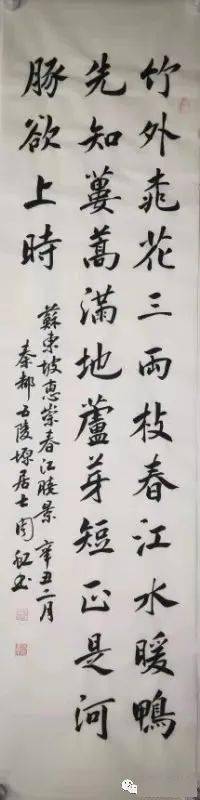 竹外桃花三兩枝春江水暖鴨
先知蔞蒿滿地蘆芽短正是河
豚欲上時
蘇東坡惠崇春江曉景辛丑二月
秦都五陵塬居士周